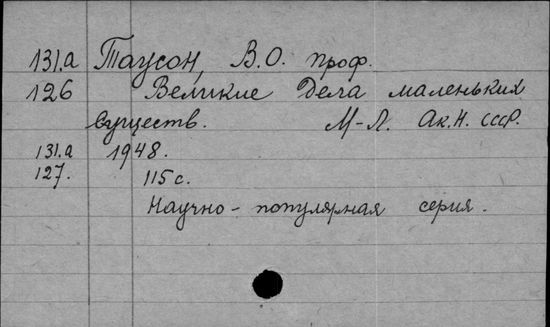 131.а Таусон, В.О. проф.
126 Великие Дела маленьких
существ. М-Л. Ак.Н. СССР.
131.а 1948.
127. 115 с.
Научно-популярная серия.